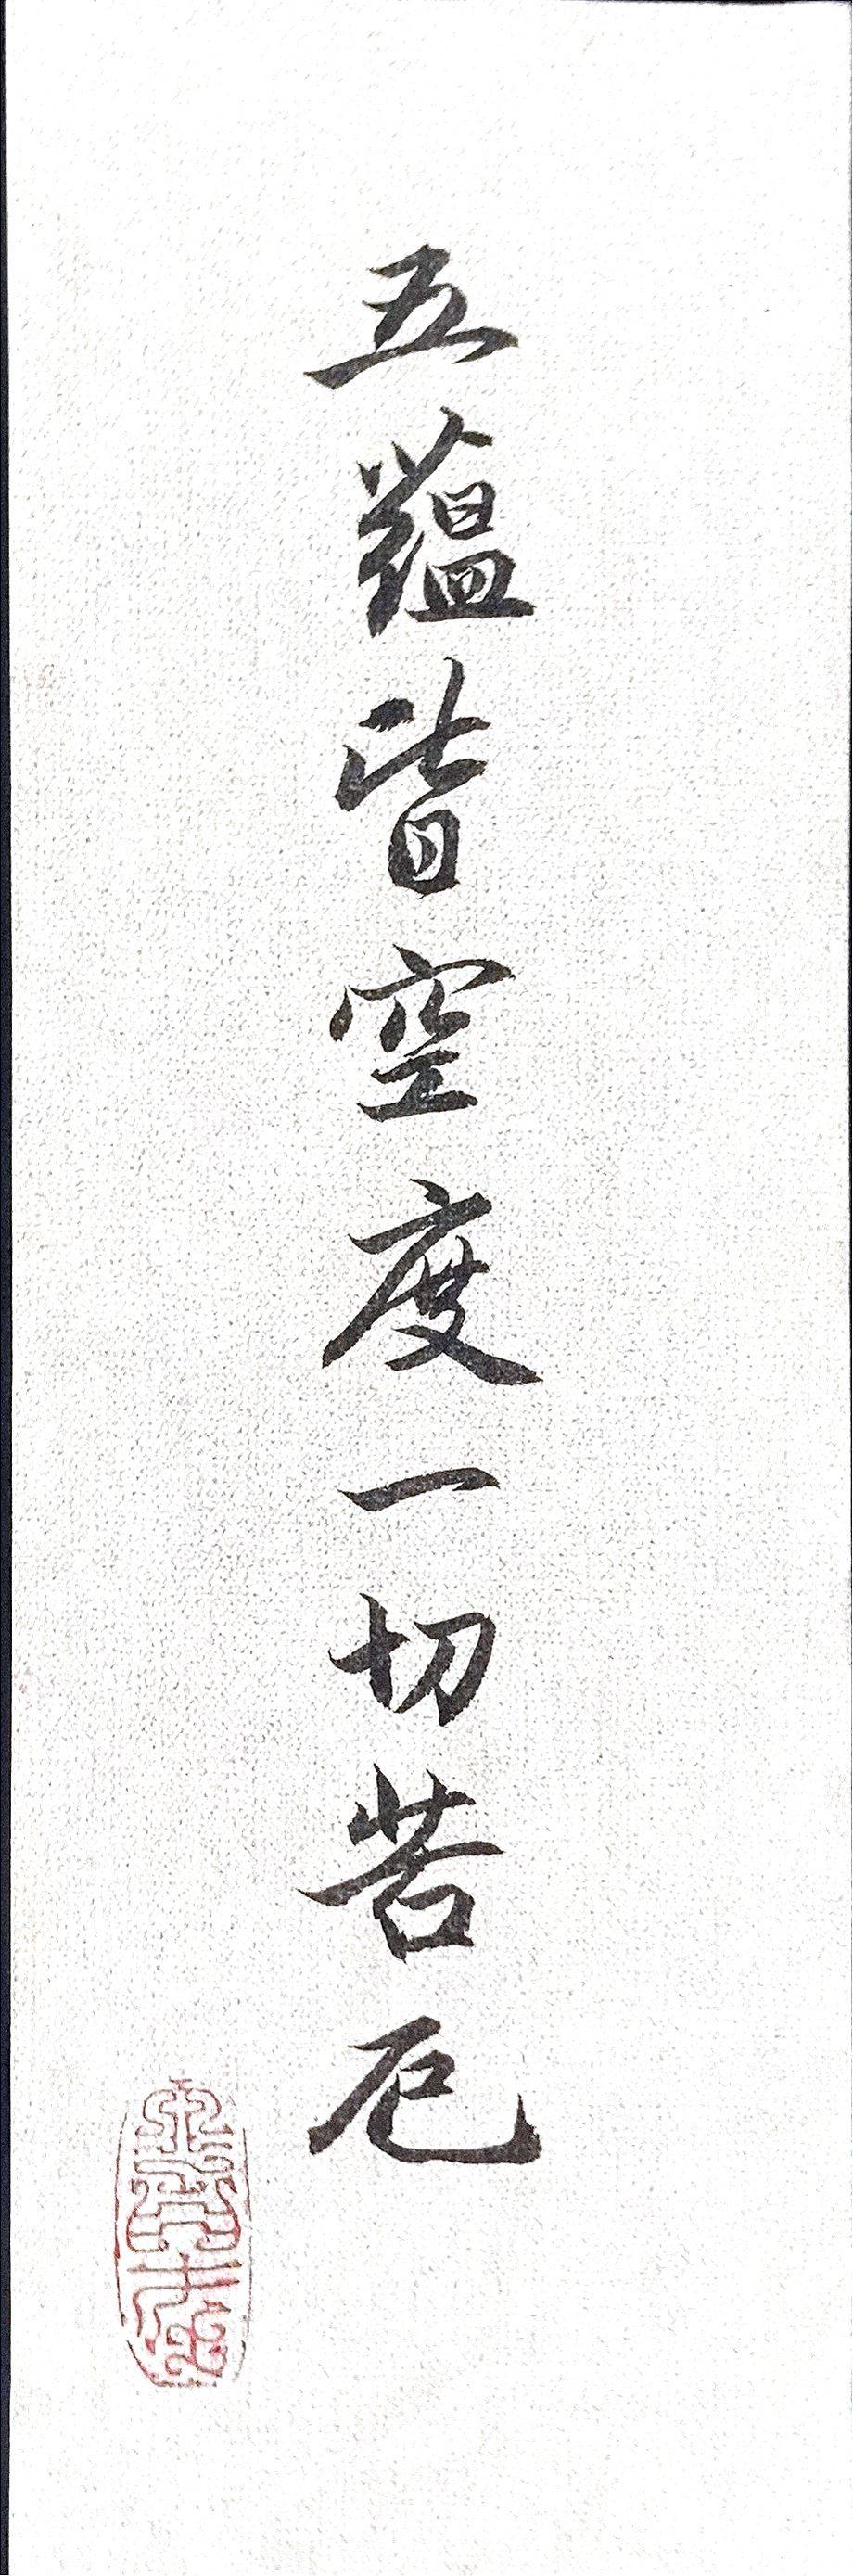 五蘊皆空度一切苦厄